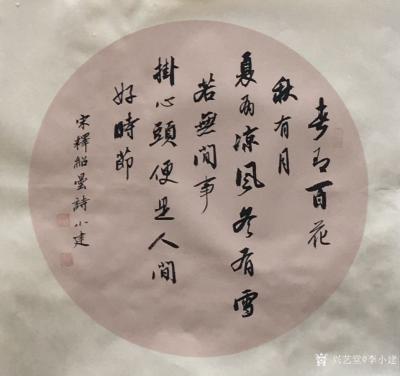 春有百花
秋有月
夏有凉風冬有雪
若無閒事
掛心頭便是人間
好時節
宋釋紹曇詩小建
兴艺堂@李小建